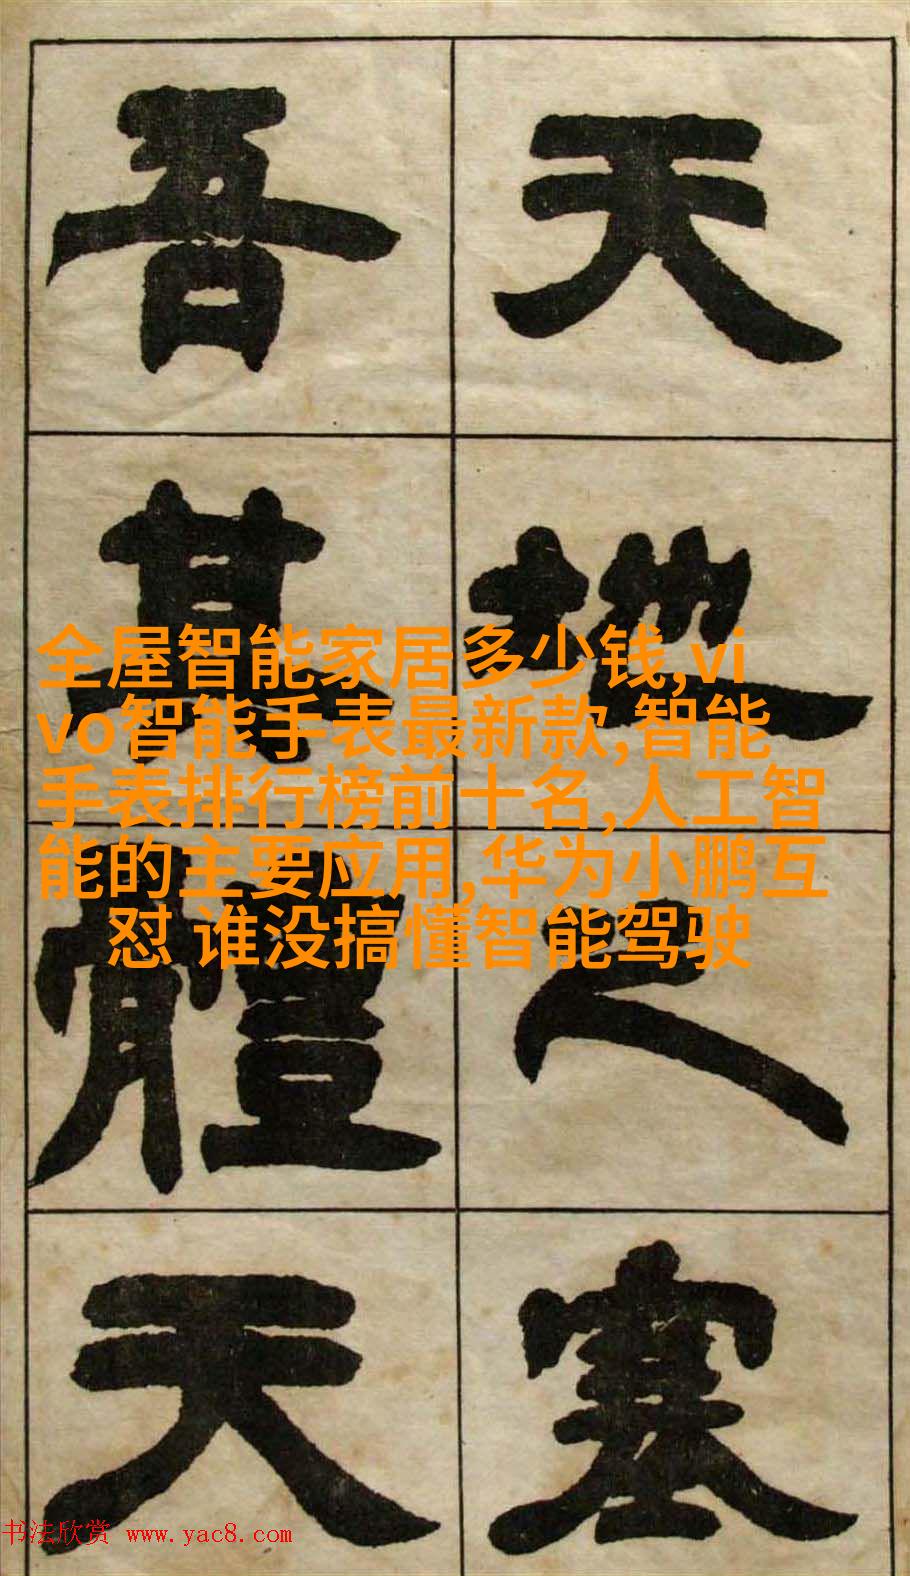 天地之塞
吾其體天
全屋智能家居多少钱,vi
vo智能手表最新款,智能
手表排行榜前十名,人工智
能的主要应用,华为小鹏互
怼 谁没搞懂智能驾驶
书法欣赏 www.yac8.com